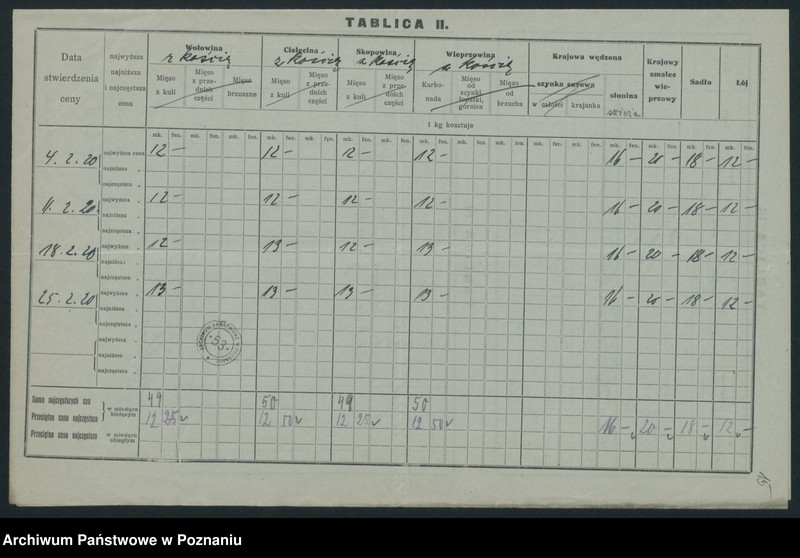 TABLICA II.
Data stwierdzenia ceny
najwyższa najniższa i najczęstsza cena
Wołowina z kością
Cielęcina z kością
Skopowina z kością
Wieprzowina z kością
Krajowa wędzona
Krajowy smalec wieprzowy
Sadło
Łój
Mięso z kuli
Mięso z przednich części
Mięso brzuszne
Mięso z kuli
Mięso z przednich części
Mięso z kuli
Mięso z przednich części
Karbonada
Mięso od szynki łopatki, górnica
Mięso od brzucha
szynka surowa
w całości
krajanka
słonina
1 kg kosztuje
mk. fen. mk. fen. mk. fen. mk. fen. mk. fen. mk. fen. mk. fen. mk. fen. mk. fen. mk. fen. mk. fen. mk. fen. mk. fen. mk. fen. mk. fen. mk. fen.
4. 2. 20 najwyższa cena 12 – 12 – 12 – 12 – 16 – 20 – 18 – 12 –
najniższa „
najczęstsza „
11. 2. 20 najwyższa „ 12 – 12 – 12 – 12 – 16 – 20 – 18 – 12 –
najniższa „
najczęstsza „
18. 2. 20 najwyższa „ 12 – 13 – 12 – 13 – 16 – 20 – 18 – 12 –
najniższa „
najczęstsza „
25. 2. 20 najwyższa „ 13 – 13 – 13 – 13 – 16 – 20 – 18 – 12 –
najniższa „
najczęstsza „
najwyższa „
najniższa „
najczęstsza „
53
Suma najczęstszych cen 49 50 49 50
Przeciętna cena najczęstsza w miesiącu bieżącym 12 25 12 50 12 25 12 50 16 – 20 – 18 – 12 –
Przeciętna cena najczęstsza w miesiącu ubiegłym
Archiwum Państwowe w Poznaniu